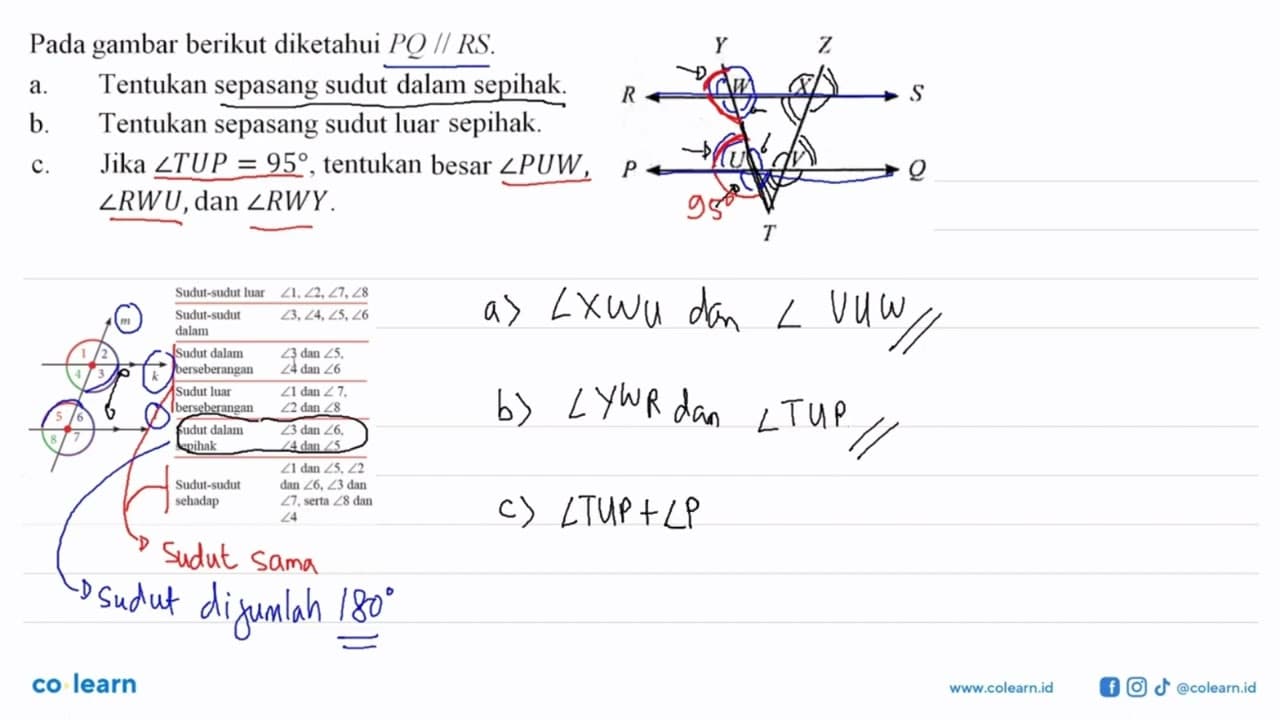 Pada gambar berikut diketahui PQ // RS.
a. Tentukan sepasang sudut dalam sepihak.
b. Tentukan sepasang sudut luar sepihak.
c. Jika ∠TUP = 95°, tentukan besar ∠PUW,
∠RWU, dan ∠RWY.
Y Z
R W X S
P U V Q
95°
T
Sudut-sudut luar ∠1, ∠2, ∠7, ∠8
Sudut-sudut ∠3, ∠4, ∠5, ∠6
dalam
Sudut dalam ∠3 dan ∠5,
berseberangan ∠4 dan ∠6
Sudut luar ∠1 dan ∠7,
berseberangan ∠2 dan ∠8
Sudut dalam ∠3 dan ∠6,
sepihak ∠4 dan ∠5
∠1 dan ∠5, ∠2
Sudut-sudut dan ∠6, ∠3 dan
sehadap ∠7, serta ∠8 dan
∠4
m
1 2
4 3 k
5 6
8 7
Sudut sama
Sudut dijumlah 180°
a) ∠XWU dan ∠VUW
b) ∠YWR dan ∠TUP
c) ∠TUP + ∠P
co learn
www.colearn.id
@colearn.id